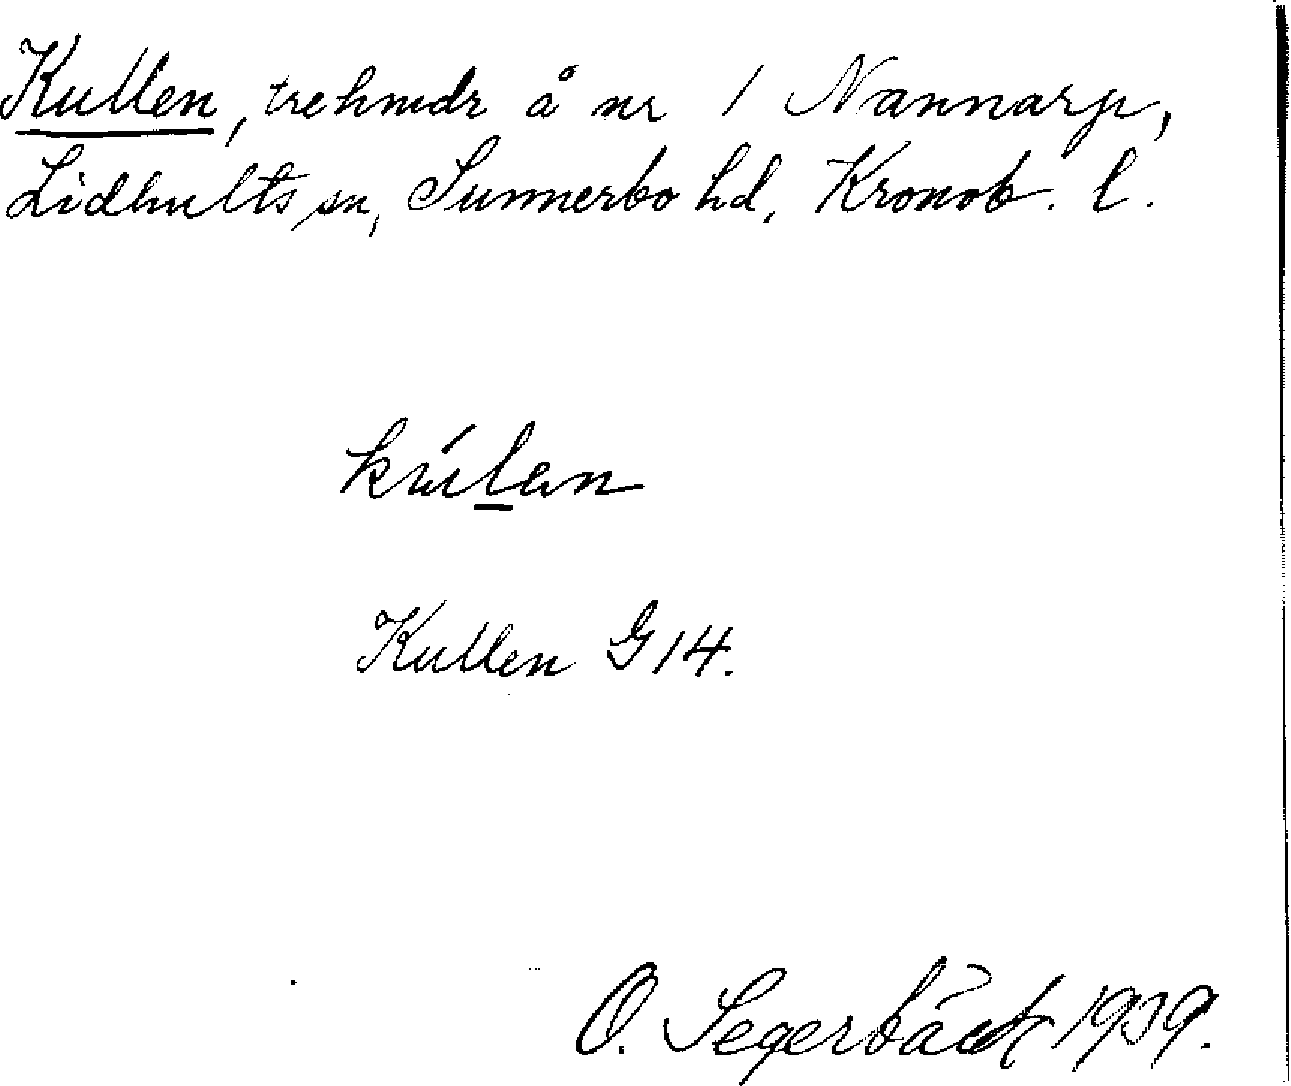 Kullen, trehmdr å nr 1 Nannarp,
Lidhults sn, Sunnerbo hd, Kronob. l.
kúlan
Kullen G 14.
O. Segerbäck 1939.